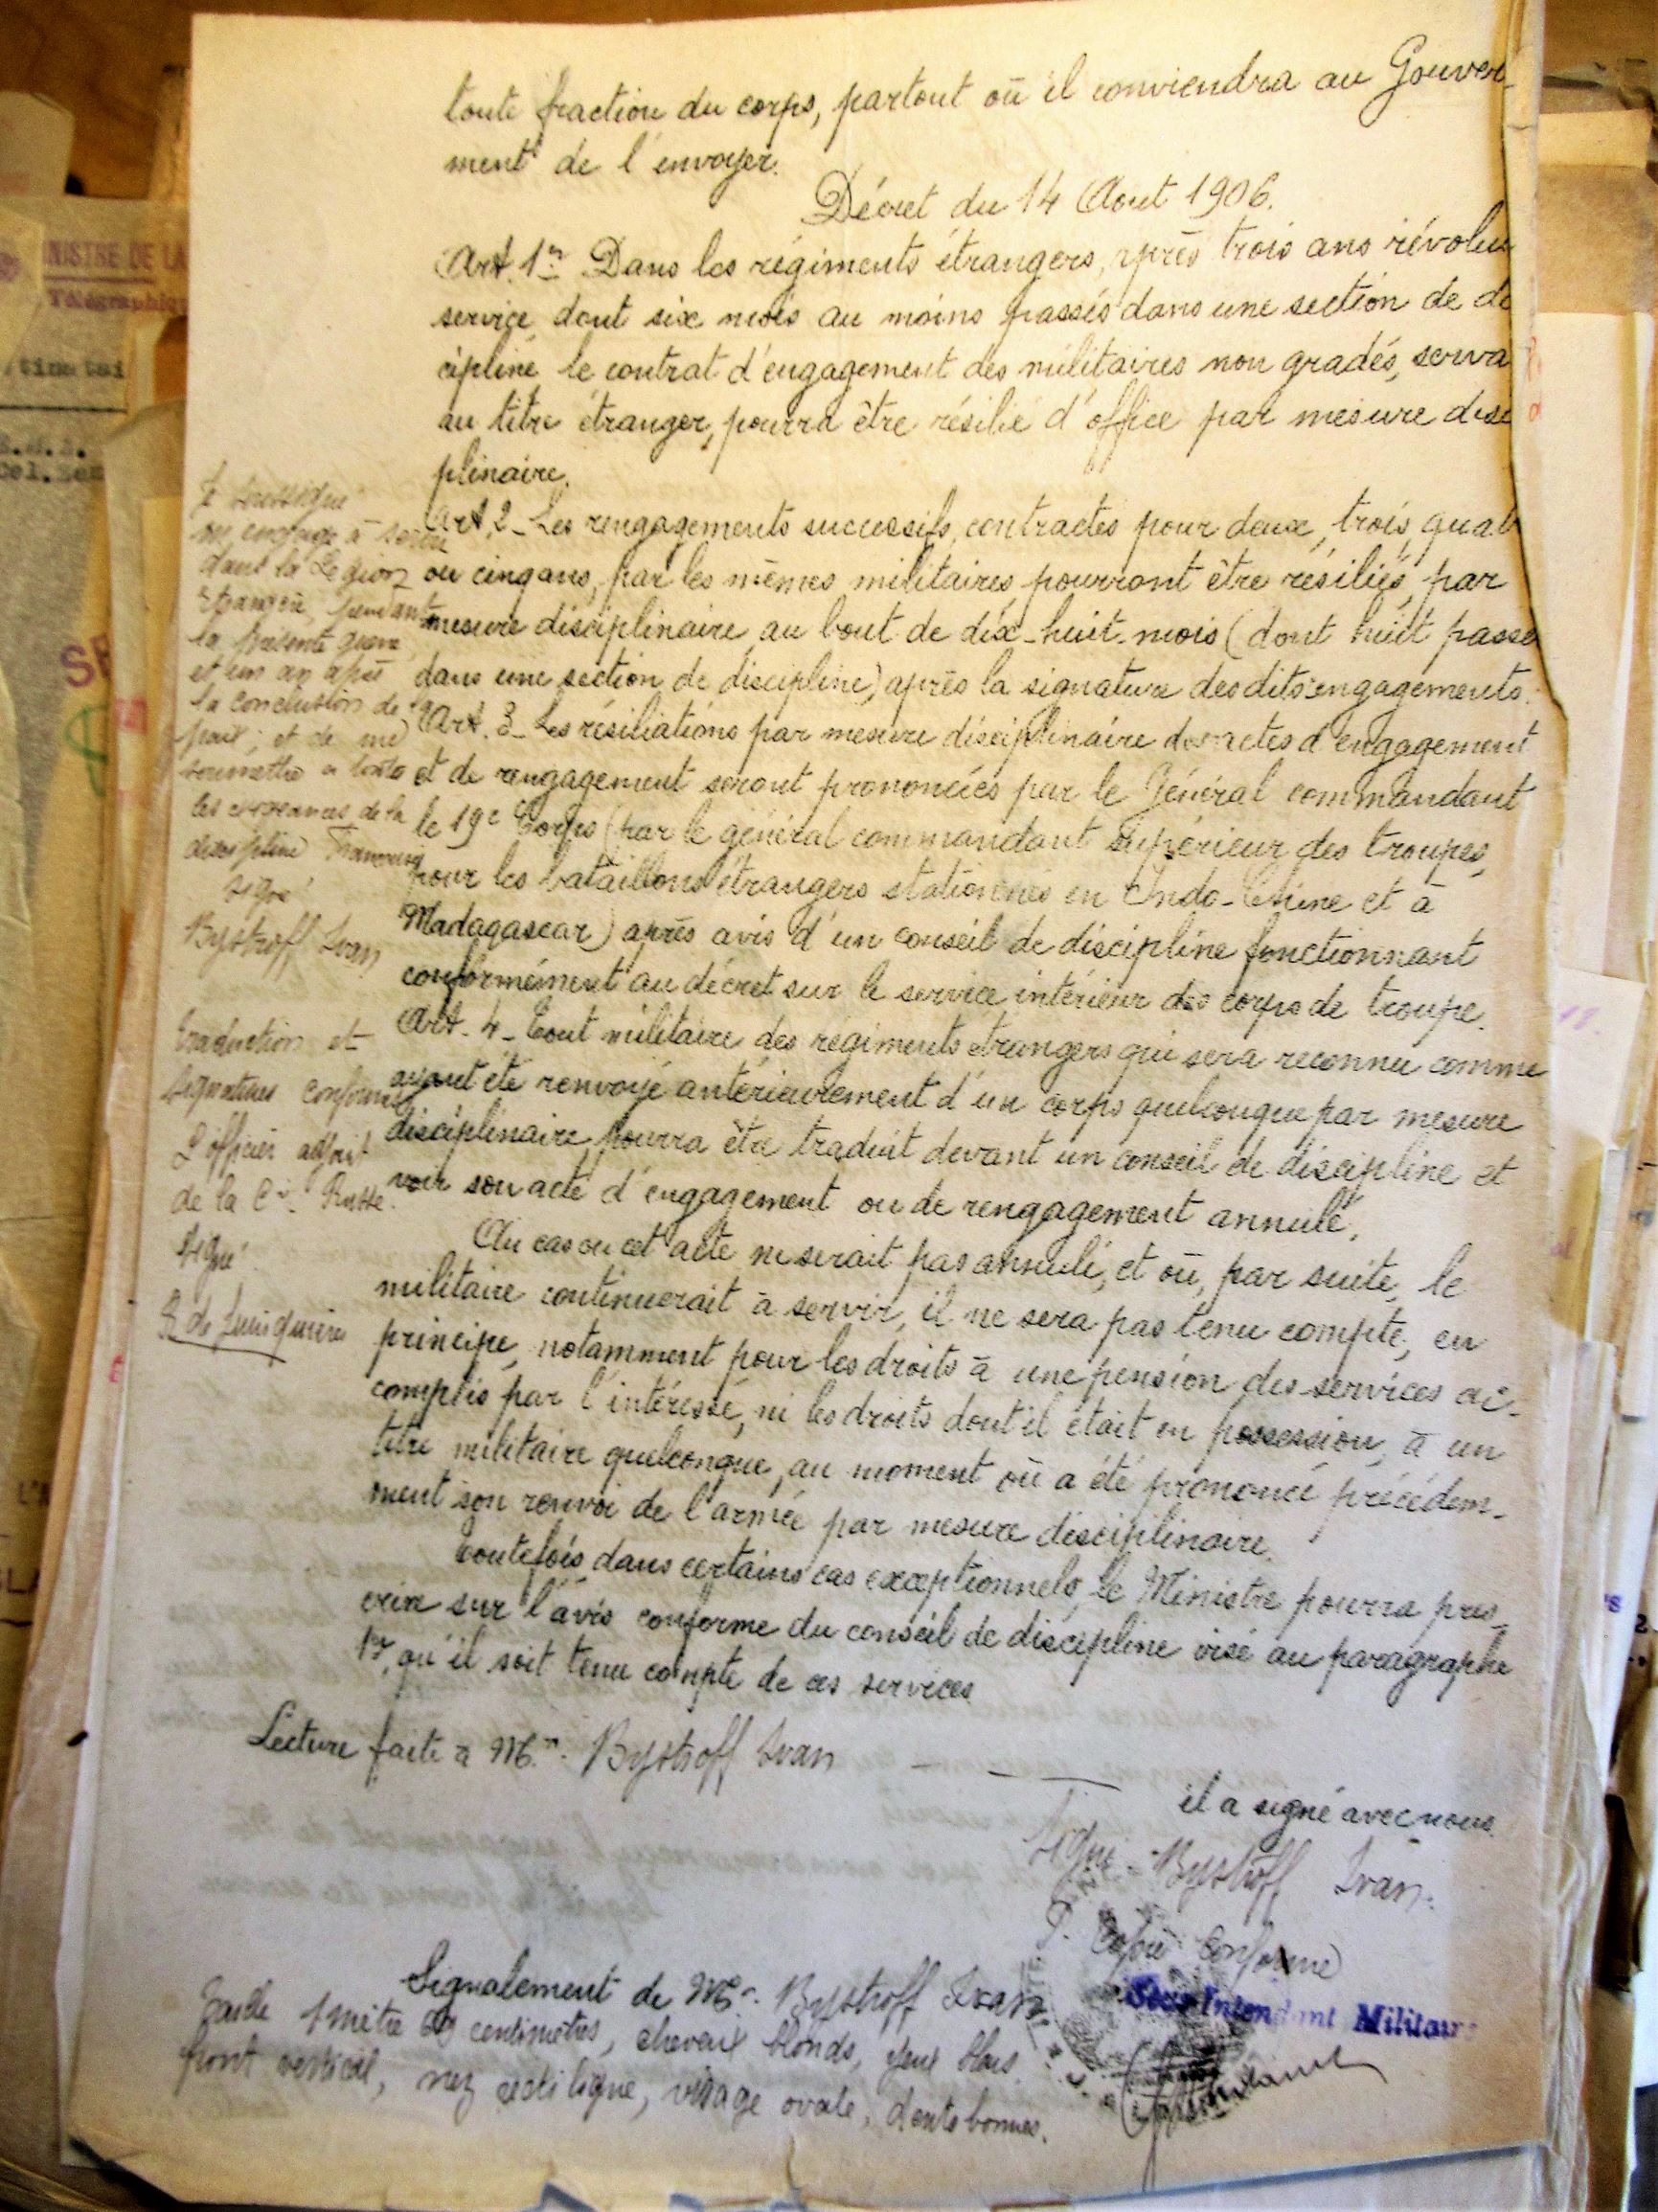 toute fraction du corps, partout où il conviendra au Gouver-
ment de l'envoyer.
Décret du 14 Aout 1906.
Art. 1er Dans les régiments étrangers, après trois ans révolu
service, dont six mois au moins passés dans une section de di
cipline le contrat d'engagement des militaires non gradés, serva
au titre étranger, pourra être résilié d'office par mesure disci
plinaire.
Art. 2 - Les rengagements successifs, contractés pour deux, trois, quat
ou cinq ans, par les mêmes militaires, pourront être résiliés, par
mesure disciplinaire, au bout de dix-huit-mois (dont huit passé
dans une section de discipline) après la signature desdits engagements.
Art. 3 - Les résiliations par mesure disciplinaire des actes d'engagement
et de rengagement seront prononcées par le Général commandant
le 19e Corps (par le général commandant supérieur des troupes,
pour les bataillons étrangers stationnés en Indo-Chine et à
Madagascar) après avis d'un conseil de discipline fonctionnant
conformément au décret sur le service intérieur des corps de troupe.
Art. 4 - Tout militaire des régiments étrangers qui sera reconnu comme
ayant été renvoyé antérieurement d'un corps quelconque par mesure
disciplinaire, pourra être traduit devant un conseil de discipline et
voir son acte d'engagement ou de rengagement annulé.
Au cas ou cet acte ne serait pas annulé, et où, par suite, le
militaire continuerait à servir, il ne sera pas tenu compte, en
principe, notamment pour les droits à une pension des services ac-
complis par l'intéressé, ni les droits dont il était en possession, à un
titre militaire quelconque, au moment où a été prononcé précédem-
ment son renvoi de l'armée par mesure disciplinaire.
Toutefois, dans certains cas exceptionnels, le Ministre pourra pres-
crire sur l'avis conforme du conseil de discipline visé au paragraphe
1er, qu'il soit tenu compte de ces services
Je soussigné
m'engage à servir
dans la Légion
étrangère, pendant
la présente guerre
et un an après
la conclusion de la
paix ; et de me
soumettre à toutes
les exigeances de la
discipline Française
signé
Bystroff Ivan
traduction et
signatures conformes
L'officier adjoint
de la Cie Russe.
signé
Lecture faite à Mr. Bystroff Ivan
il a signé avec nous.
Signé - Bystroff Ivan.
P. Copie Conforme
Sous Intendant Militaire
Signalement de Mr. Bystroff Ivan
Taille 1 mètre centimètres, cheveux blonds, yeux bleus.
front vertical, nez rectiligne, visage ovale, dents bonnes.